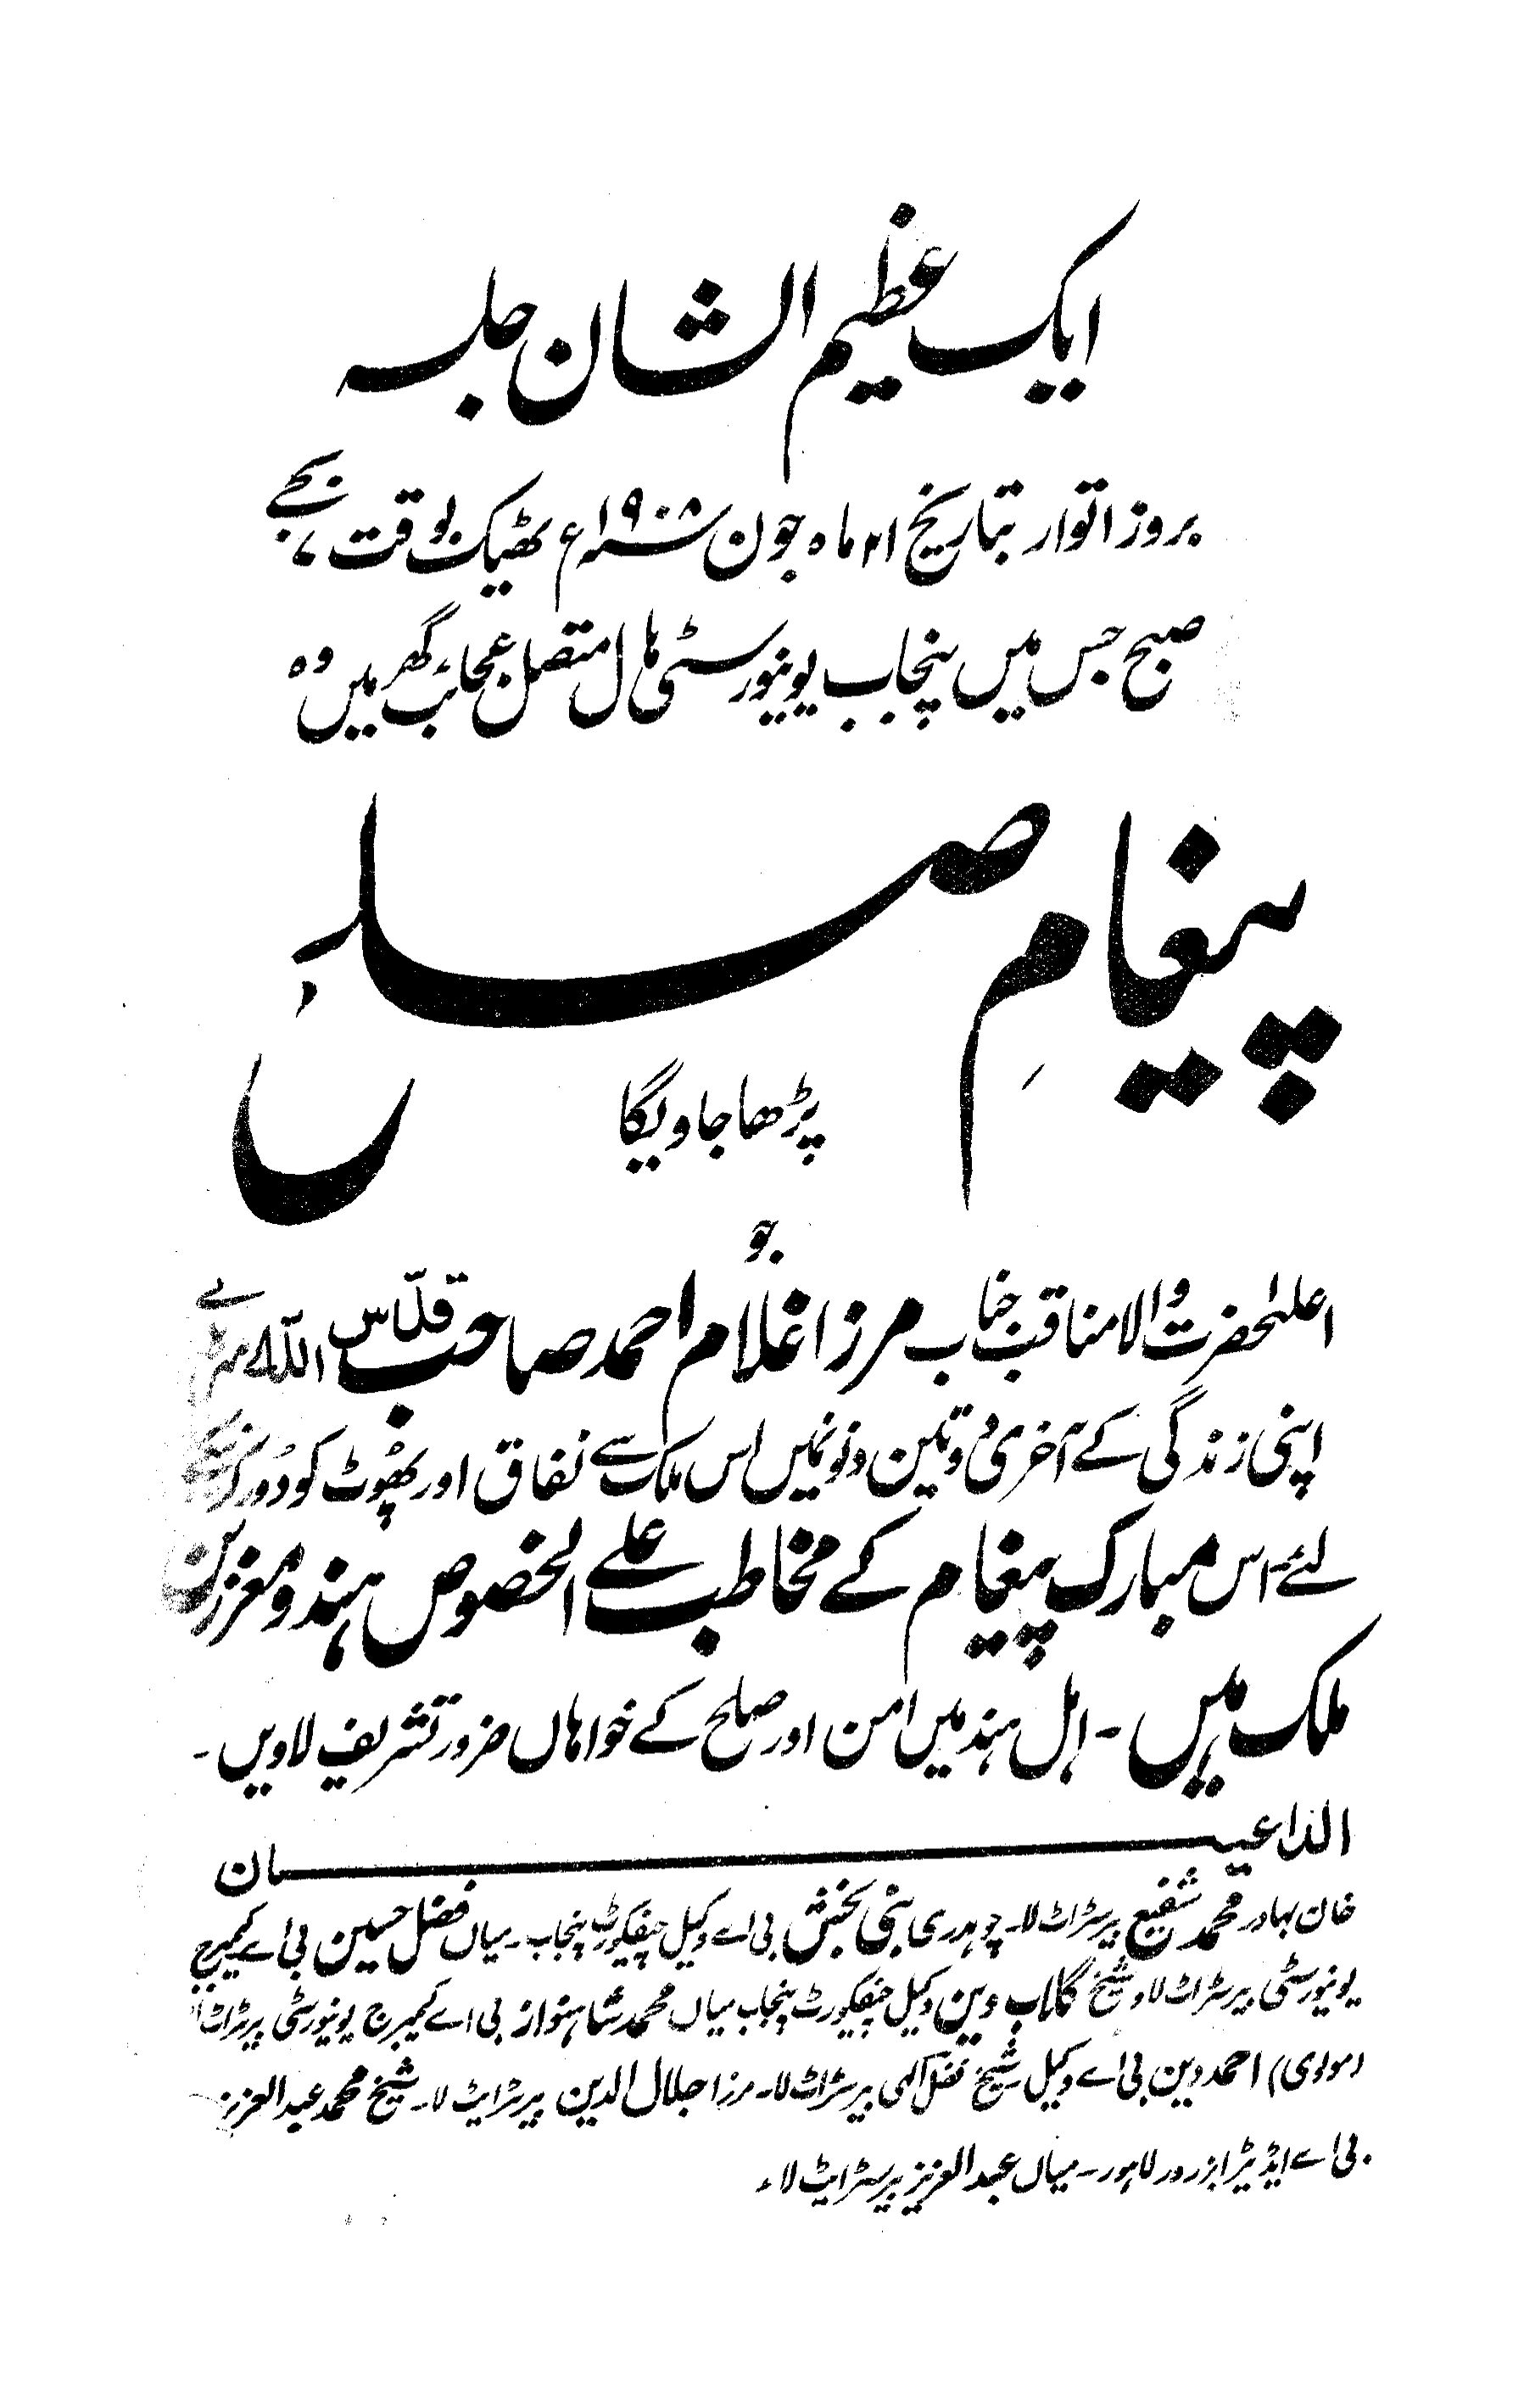 ایک عظیم الشان جلسہ
بروز اتوار بتاریخ ۲۱ ماہ جون ۱۹۰۸ء ٹھیک بوقت ۷ بجے
صبح جس میں پنجاب یونیورسٹی ہال متصل عجائب گھر میں وہ
پیغامِ صلح
پڑھا جاویگا
جو
اعلیٰحضرت والا مناقب جناب مرزا غلام احمد صاحب قدّس اللہ سرہٗ نے
اپنی زندگی کے آخری دو تین دنوں میں اس ملک سے نفاق اور پھُوٹ کو دُور کرنیکے
لئے اس مبارک پیغام کے مخاطب علے الخصوص ہندو معززین
ملک ہیں ۔ اہل ہند میں امن اور صلح کے خواہاں ضرور تشریف لاویں ۔
الداعیان
خان بہادر محمد شفیع بیرسٹراٹ لا۔ چوہدری نبی بخش بی اے وکیل چیفکورٹ پنجاب۔ میاں فضل حسین بی اے کیمبرج
یونیورسٹی بیرسٹراٹ لا و شیخ گلاب دین وکیل چیفکورٹ پنجاب میاں محمد شاہنواز بی اے کیمبرج یونیورسٹی بیرسٹراٹ لا
(مولوی) احمد دین بی اے وکیل شیخ فضل الٰہی بیرسٹراٹ لا۔ مرزا جلال الدین بیرسٹرایٹ لا۔ شیخ محمد عبدالعزیز
بی اے ایڈیٹر ابزرور لاہور۔ میاں عبدالعزیز بیرسٹرایٹ لاء